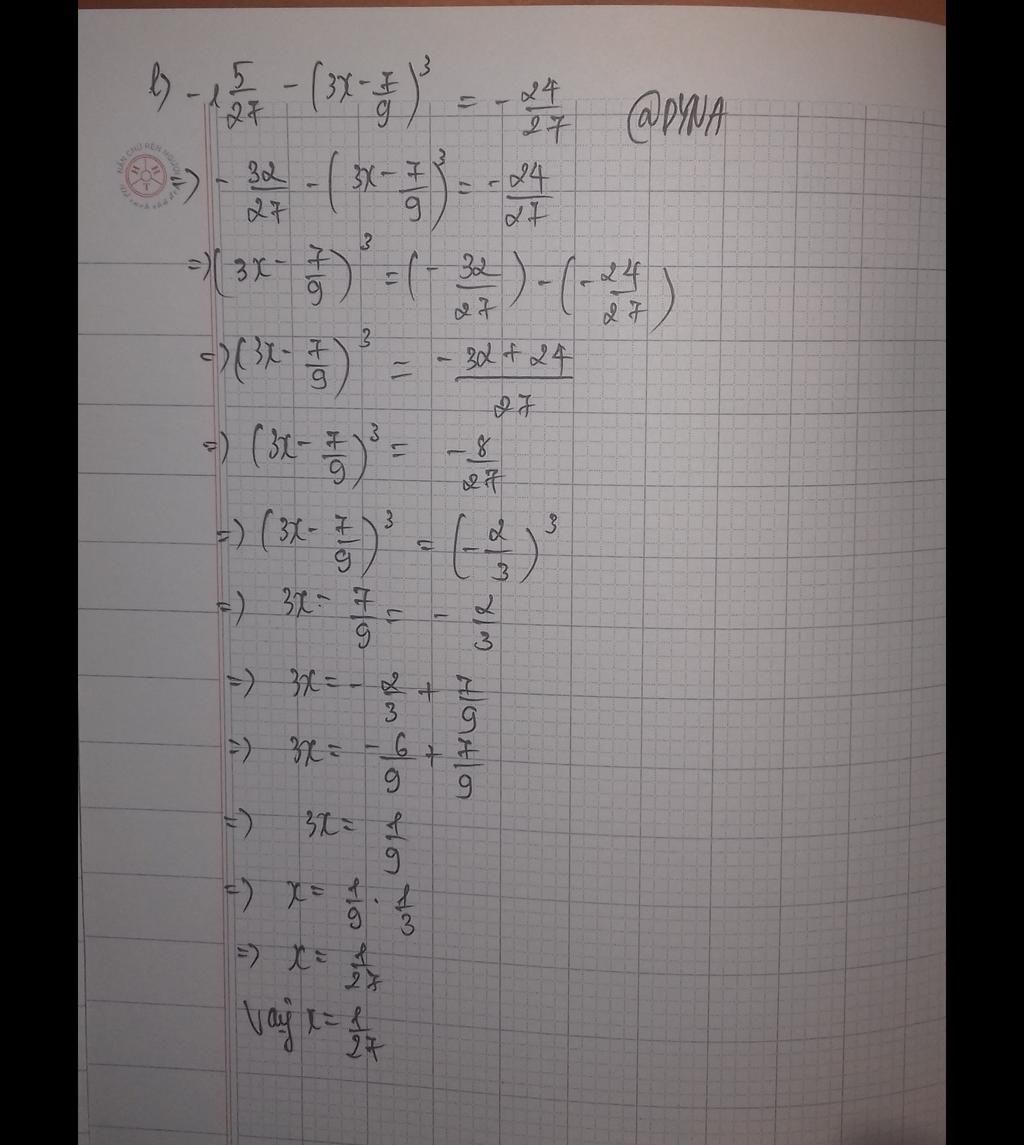 b) -1 5/27 - (3x - 7/9)^3 = - 24/27 @DYNA
=) - 32/27 - (3x - 7/9)^3 = - 24/27
=) (3x - 7/9)^3 = (- 32/27) - (- 24/27)
=) (3x - 7/9)^3 = (- 32 + 24)/27
=) (3x - 7/9)^3 = - 8/27
=) (3x - 7/9)^3 = (- 2/3)^3
=) 3x - 7/9 = - 2/3
=) 3x = - 2/3 + 7/9
=) 3x = - 6/9 + 7/9
=) 3x = 1/9
=) x = 1/9 . 1/3
=) x = 1/27
Vậy x = 1/27